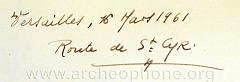 Versailles, 16 Mars 1961
Route de St Cyr.
www.archeophone.org